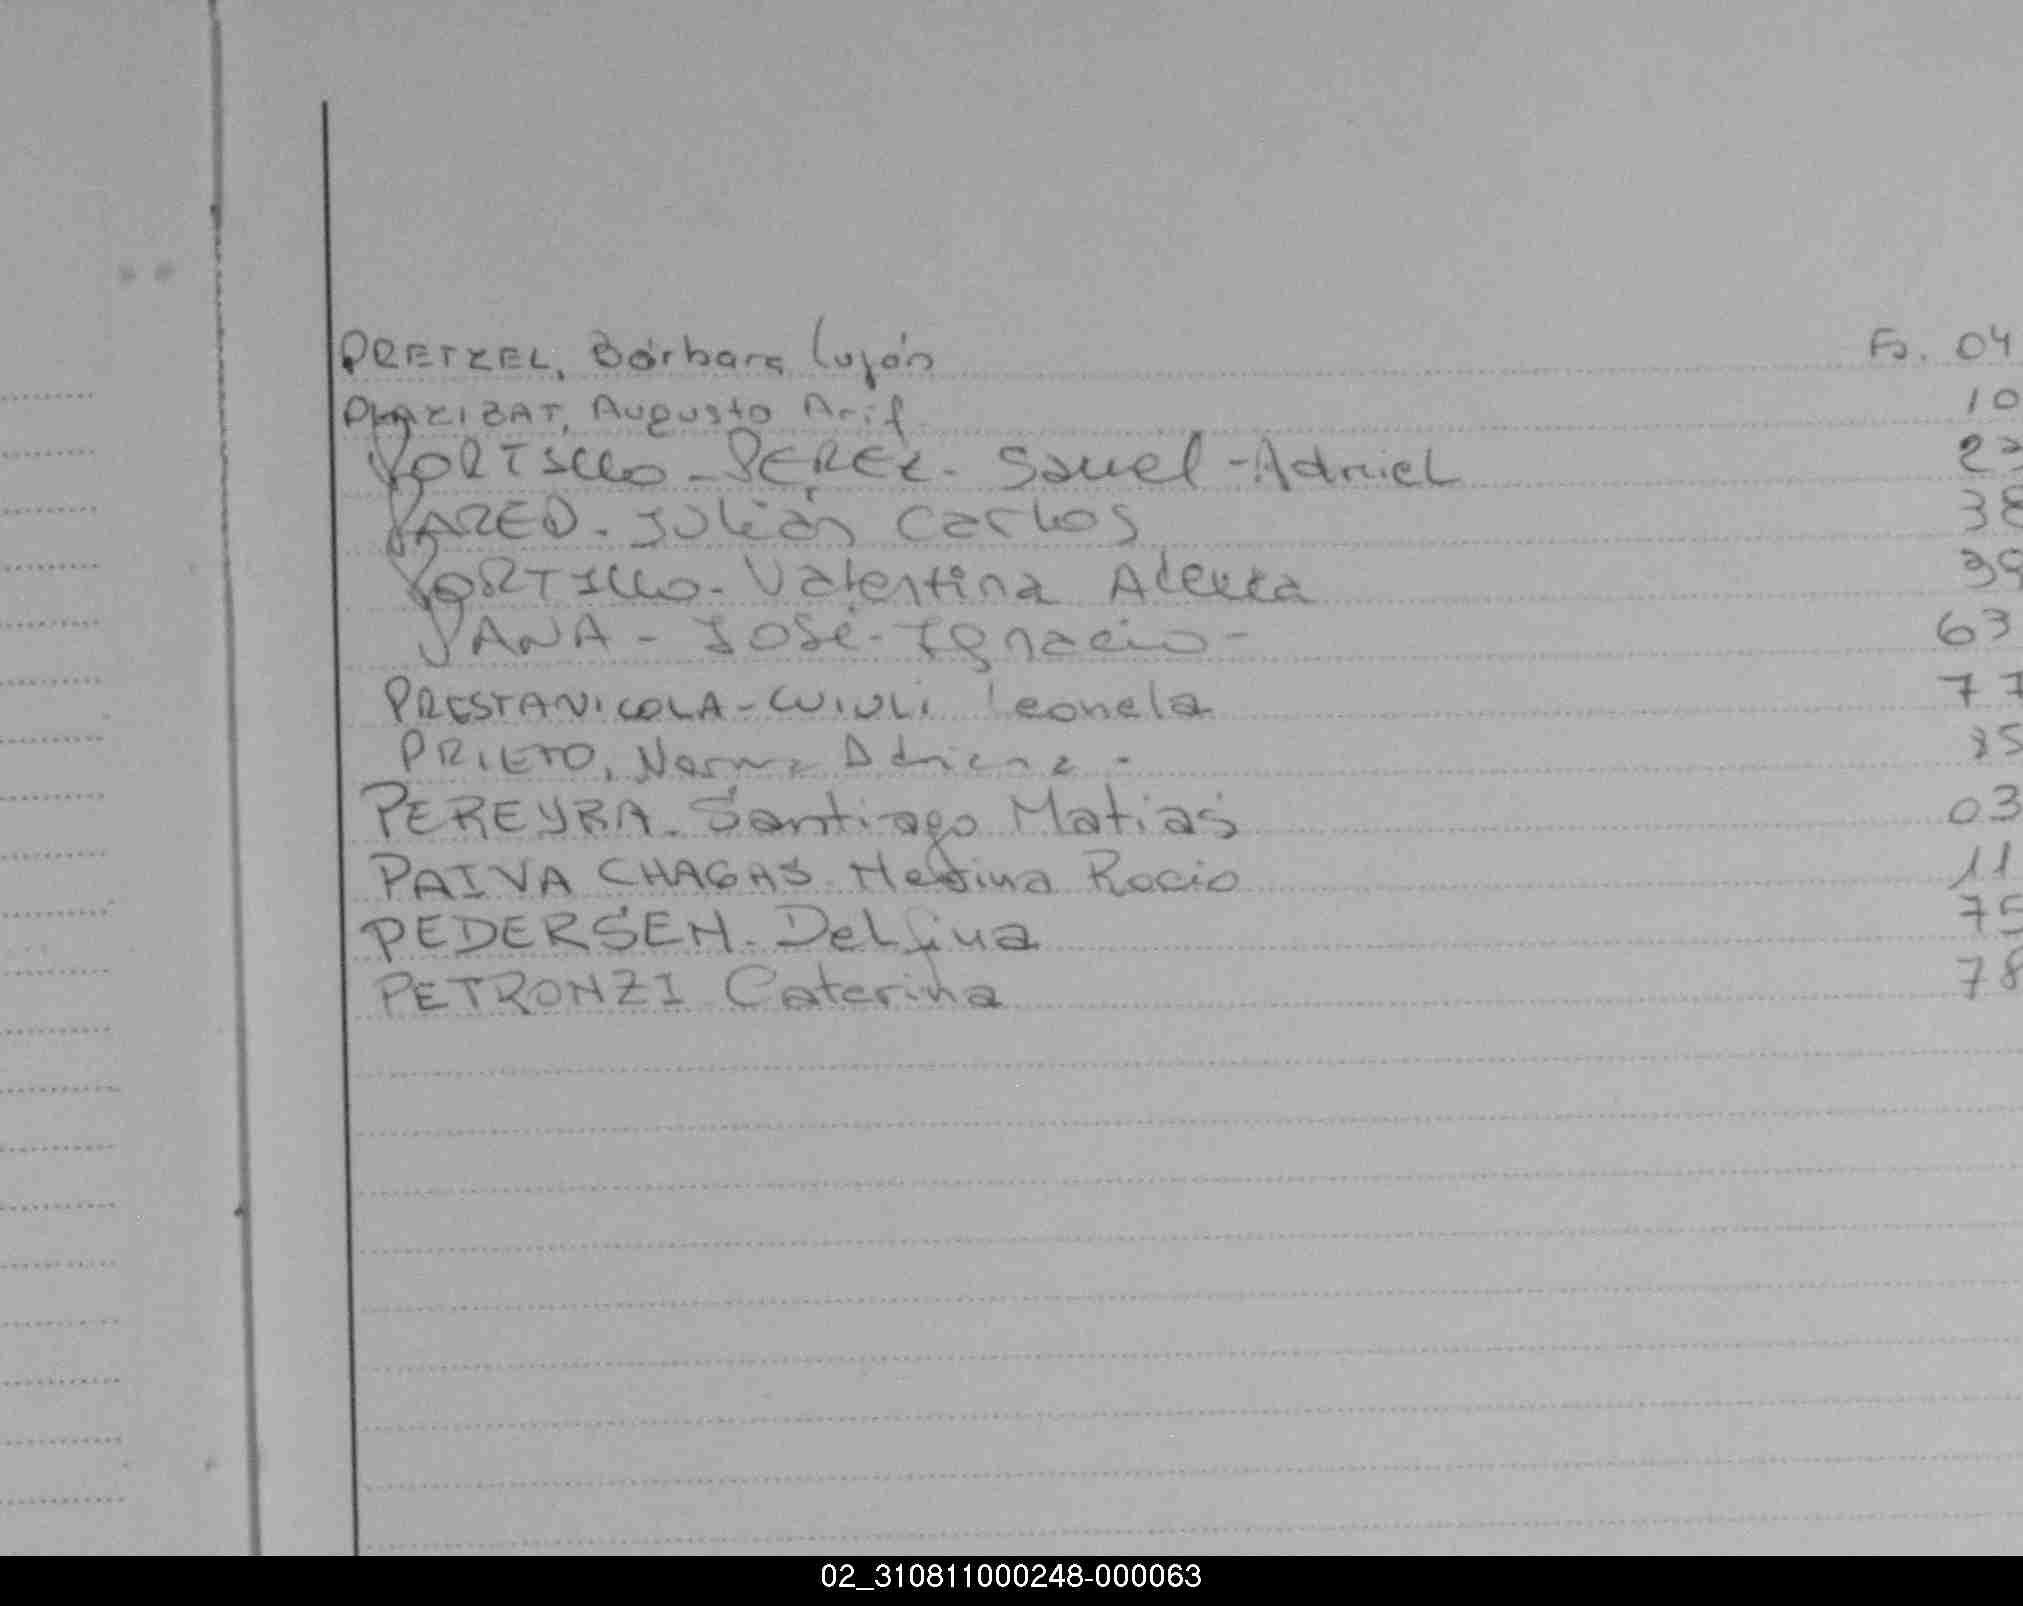 PRETZEL, Bárbara Luján Fs. 04
PLAZIBAT, Augusto Arif 10
PORTILLO - PEREZ - Samuel - Adriel
PARED - Julián Carlos 38
PORTILLO - Valentina 39
PANA - José - Ignacio - 63
PRESTANICOLA - Leonela 77
PRIETO, Norma Adriana -
PEREYRA - Santiago Matias 03
PAIVA CHAGAS Rocio 11
PEDERSEN - Delfina 75
PETRONZI Caterina 78
02_310811000248-000063